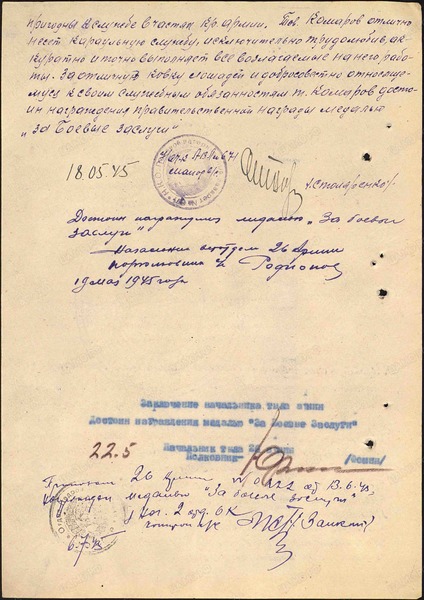 пригодны в службе в частях Кр. армии. Тов. Комаров отлично
несет караульную службу, исключительно трудолюбив, ак-
куратно и точно выполняет все возлагаемые на него рабо-
ты. За отличную ковку лошадей и добросовестно относяще-
муся к своим служебным обязанностям т. Комаров досто-
ин награждения правительственной награды медалью
„За Боевые заслуги"
18.05.45
майор
/Столяренко/
Достоин награждения медалью „За боевые
заслуги"
26 Армии
Родионов
19 мая 1945 года
Заключение начальника тыла армии
Достоин награждения медалью "За Боевые Заслуги"
22.5
Начальник тыла 26 армии
Полковник-
26 Армии № от 13.6.45
медалью "За боевые заслуги"
2 отд. ОК
6.7.45